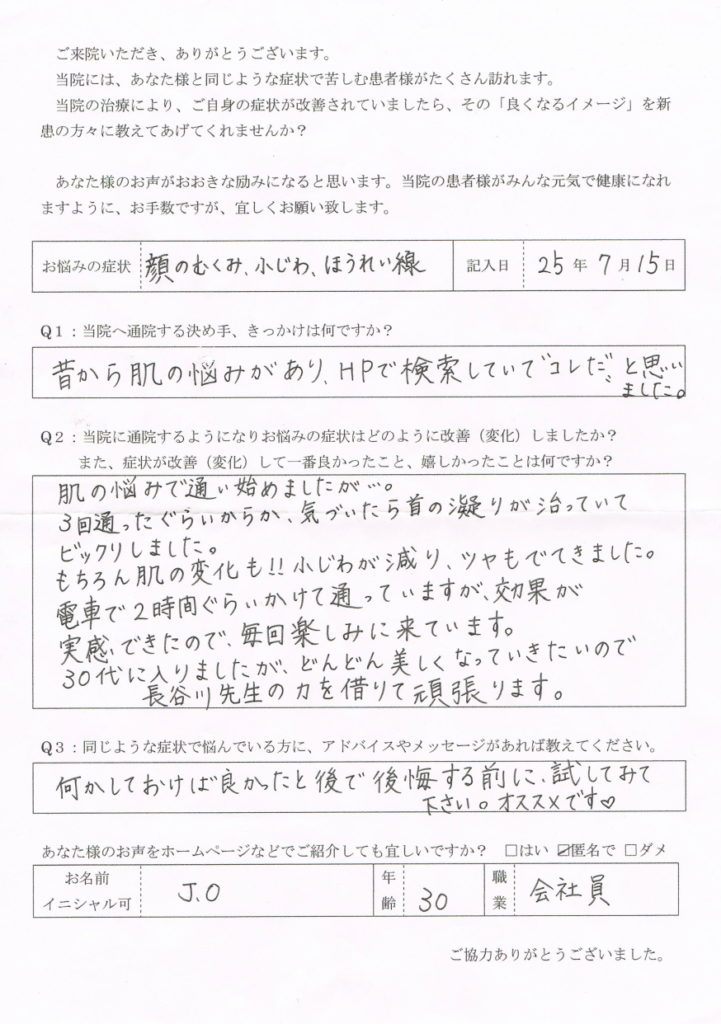 ご来院いただき、ありがとうございます。
当院には、あなた様と同じような症状で苦しむ患者様がたくさん訪れます。
当院の治療により、ご自身の症状が改善されていましたら、その「良くなるイメージ」を新
患の方々に教えてあげてくれませんか？
あなた様のお声がおおきな励みになると思います。当院の患者様がみんな元気で健康になれ
ますように、お手数ですが、宜しくお願い致します。
お悩みの症状 顔のむくみ、小じわ、ほうれい線 記入日 25年7月15日
Q1：当院へ通院する決め手、きっかけは何ですか？
昔から肌の悩みがあり、HPで検索していて"コレだ"と思い
ました。
Q2：当院に通院するようになりお悩みの症状はどのように改善（変化）しましたか？
また、症状が改善（変化）して一番良かったこと、嬉しかったことは何ですか？
肌の悩みで通い始めましたが…。
3回通ったぐらいからか、気づいたら首の凝りが治っていて
ビックリしました。
もちろん肌の変化も!!小じわが減り、ツヤもでてきました。
電車で2時間ぐらいかけて通っていますが、効果が
実感できたので、毎回楽しみに来ています。
30代に入りましたが、どんどん美しくなっていきたいので
長谷川先生の力を借りて頑張ります。
Q3：同じような症状で悩んでいる方に、アドバイスやメッセージがあれば教えてください。
何かしておけば良かったと後で後悔する前に、試してみて
下さい。オススメです♡
あなた様のお声をホームページなどでご紹介しても宜しいですか？ □はい ☑匿名で □ダメ
お名前 イニシャル可 J.O 年齢 30 職業 会社員
ご協力ありがとうございました。